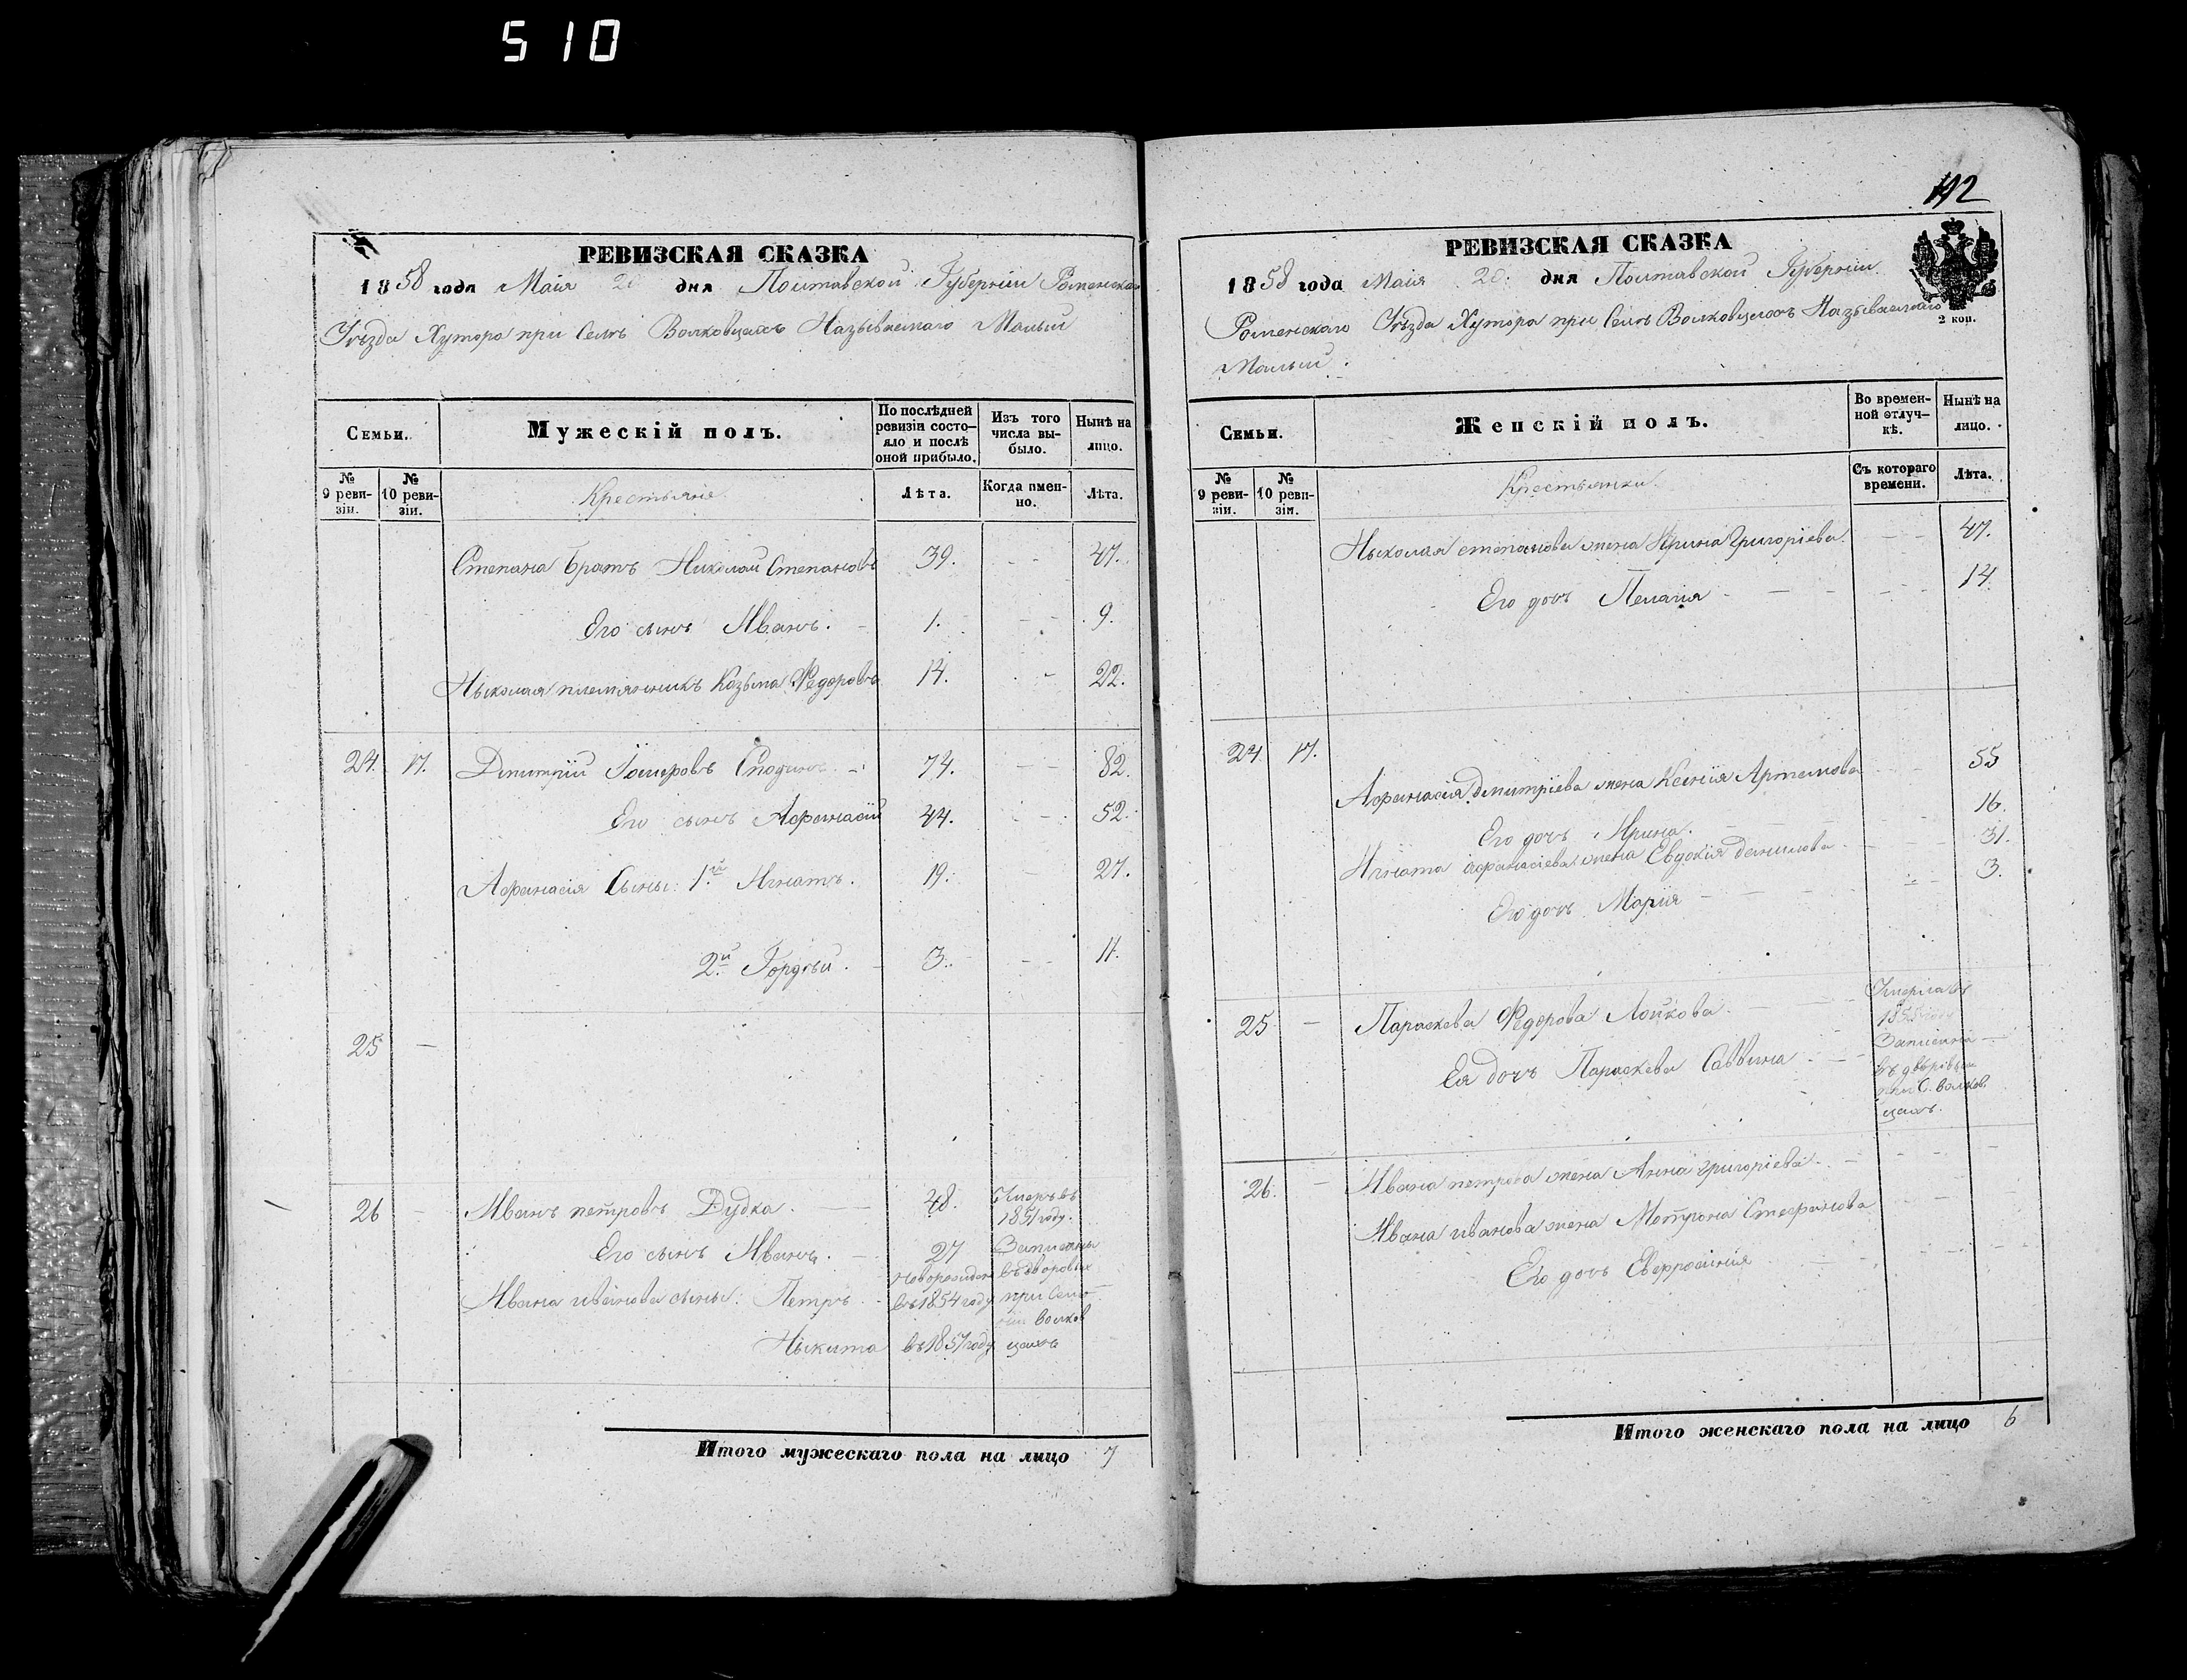 510
РЕВИЗСКАЯ СКАЗКА
1858 года Маія 20 дня Полтавской Губерніи Роменскаго
Уѣзда Хутора при Селѣ Волковцахъ Называемаго Малый
Семьи.
Мужескій полъ.
По послѣдней ревизіи состо-
яло и послѣ
оной прибыло.
Изъ того
числа вы-
было.
Нынѣ на
лицо.
№
9 реви-
зіи.
№
10 реви-
зіи.
Крестьяне
Лѣта.
Когда имен-
но.
Лѣта.
Степана братъ Николай Степановъ 39. 47.
Его сынъ Иванъ. 1. 9.
Николая племянникъ Козьма Федоровъ 14. 22.
24. 17. Дмитрій 74. 82.
Его сынъ Афанасій 44. 52.
Афанасія Сыны: 1.й Игнатъ. 19. 27.
2.й Гордѣй. 3. 11.
25 —
26 — Иванъ петровъ Дудка. 48. Умеръ въ
1851 году.
Его сынъ Иванъ. 27 Записаны
Ивана иванова сыны: Петръ новорожден въ дворовые
въ 1854 году при Селѣ
Никита въ 1857 году волков
цахъ
Итого мужескаго пола на лицо 7
192
РЕВИЗСКАЯ СКАЗКА
1858 года Маія 20 дня Полтавской Губерніи
Роменскаго Уѣзда Хутора при Селѣ Волковцахъ Называемаго
Малый.
2 коп.
Семьи.
Женскій полъ.
Во времен-
ной отлуч-
кѣ.
Нынѣ на
лицо.
№
9 реви-
зіи.
№
10 реви-
зіи.
Крестьянки.
Съ котораго
времени.
Лѣта.
Николая степанова жена Ирина Григоріева 47.
Его дочь Пелагія 14.
24. 17. Афанасія дмитріева жена Ксенія Артемова 55
Его дочь Ирина. 16.
Игната афанасіева жена Евдокія данилова 31.
Его дочь Марія 3.
25 — Параскева Федорова Лойкова. Умерла въ
1855 году
Ея дочь Параскева Саввина Записана
въ дворовые
при С. волков
цахъ.
26. — Ивана петрова жена Анна григоріева
Ивана иванова жена Мотрона Стефанова
Его дочь Евфросинія
Итого женскаго пола на лицо 6